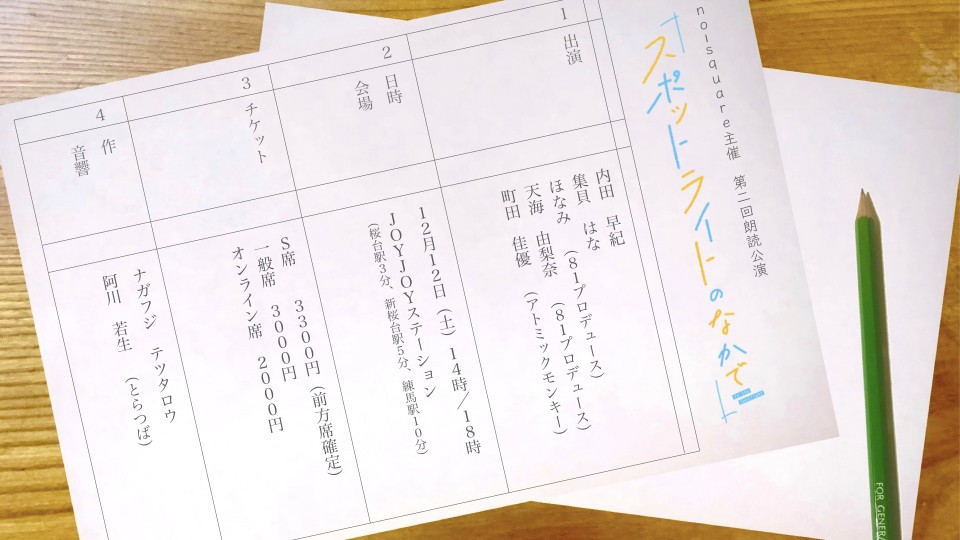 noisquare主催　第二回朗読公演
スポットライトのなかで
1　出演
内田　早紀
集貝　はな
ほなみ　（81プロデュース）
天海　由梨奈　（81プロデュース）
町田　佳優　（アトミックモンキー）
2　日時
会場
12月12日（土）14時/18時
JOYJOYステーション
（桜台駅3分、新桜台駅5分、練馬駅10分）
3　チケット
S席　3300円（前方席確定）
一般席　3000円
オンライン席　2000円
4　作
音響
ナガフジ　テツタロウ
阿川　若生　（とらつば）
FOR GENERA